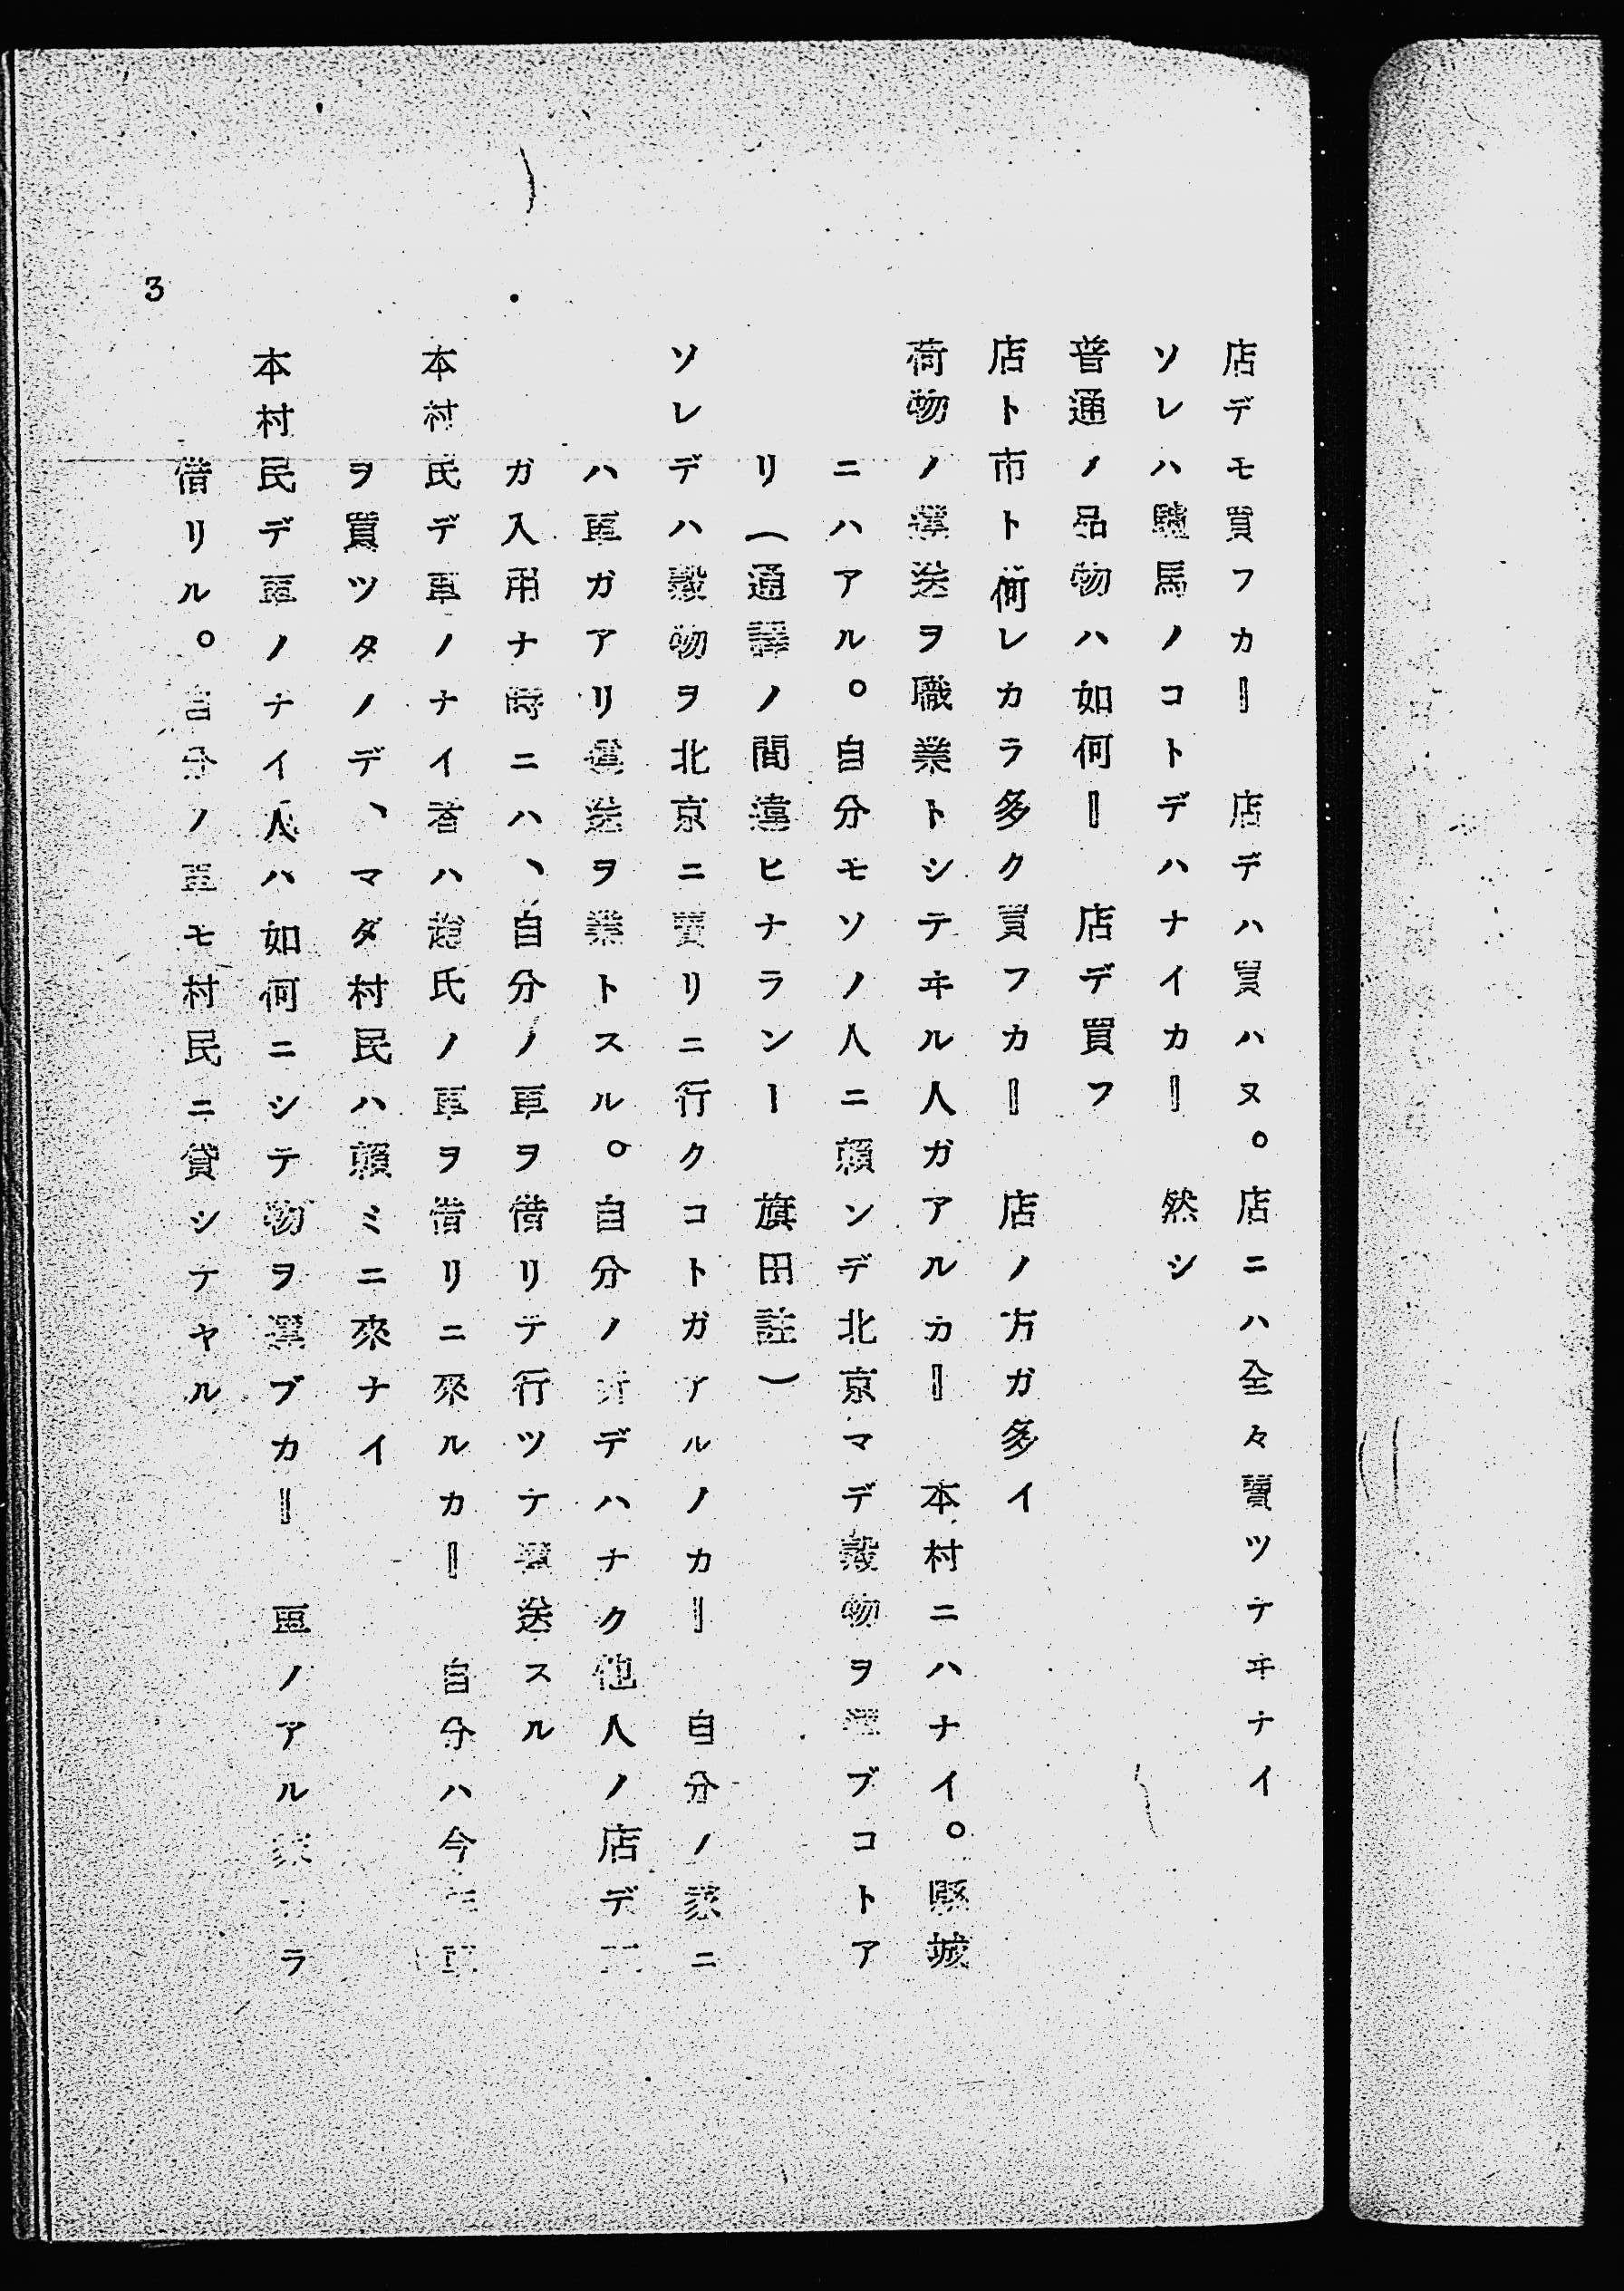 店デモ買フカ＝　店デハ買ハヌ。店ニハ全々賣ツテヰナイ
ソレハ驢馬ノコトデハナイカ＝　然シ
普通ノ品物ハ如何＝　店デ買フ
店ト市ト何レカラ多ク買フカ＝　店ノ方ガ多イ
荷物ノ運送ヲ職業トシテヰル人ガアルカ＝　本村ニハナイ。縣城
ニハアル。自分モソノ人ニ頼ンデ北京マデ穀物ヲ運ブコトア
リ（通譯ノ間違ヒナランー　旗田註）
ソレデハ穀物ヲ北京ニ賣リニ行クコトガアルノカ＝　自分ノ家ニ
ハ車ガアリ運送ヲ業トスル。自分ノ村デハナク他人ノ店デ
ガ入用ナ時ニハ、自分ノ車ヲ借リテ行ツテ運送スル
本村民デ車ノナイ者ハ趙氏ノ車ヲ借リニ來ルカ＝　自分ハ今年車
ヲ買ツタノデ、マダ村民ハ頼ミニ來ナイ
本村民デ車ノナイ人ハ如何ニシテ物ヲ運ブカ＝　車ノアル家カラ
借リル。自分ノ車モ村民ニ貸シテヤル
3